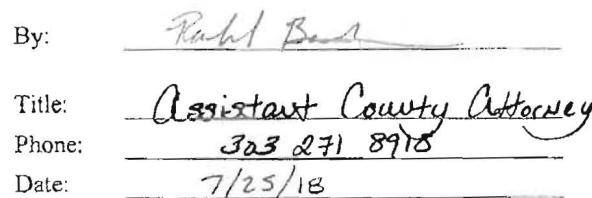 By:
Title: Assistant County Attorney
Phone: 303 271 8918
Date: 7/25/18